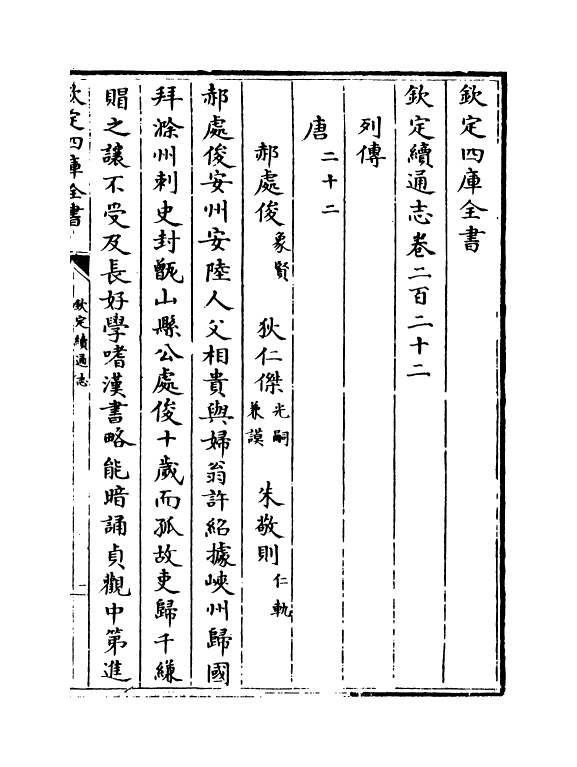 欽定四庫全書
欽定續通志卷二百二十二
列傳
唐二十二
郝處俊象賢 狄仁傑光嗣兼謨 朱敬則仁軌
郝處俊安州安陸人父相貴與婦翁許紹據峽州歸國
拜滁州刺史封甑山縣公處俊十歲而孤故吏歸千縑
賵之讓不受及長好學嗜漢書略能暗誦貞觀中第進
欽定四庫全書
欽定續通志
一